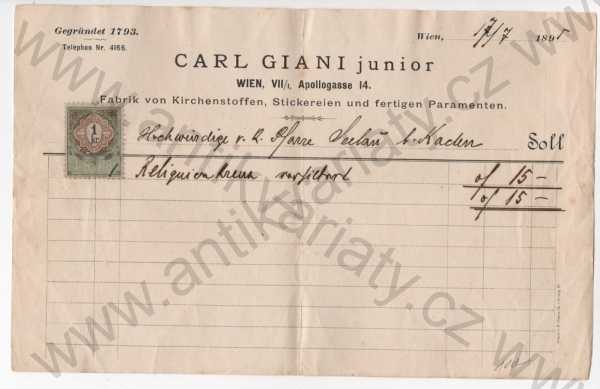 Gegründet 1793.
Telephon Nr. 4166.
Wien, 17/7 1895
CARL GIANI junior
WIEN, VII/1, Apollogasse 14.
Fabrik von Kirchenstoffen, Stickereien und fertigen Paramenten.
1 kr.
Hochwürdige Pfarre Seelau b. Kaaden Soll
1 Reliquien kreuz versilbert of 15 —
of 15 —
www.antikvariaty.cz